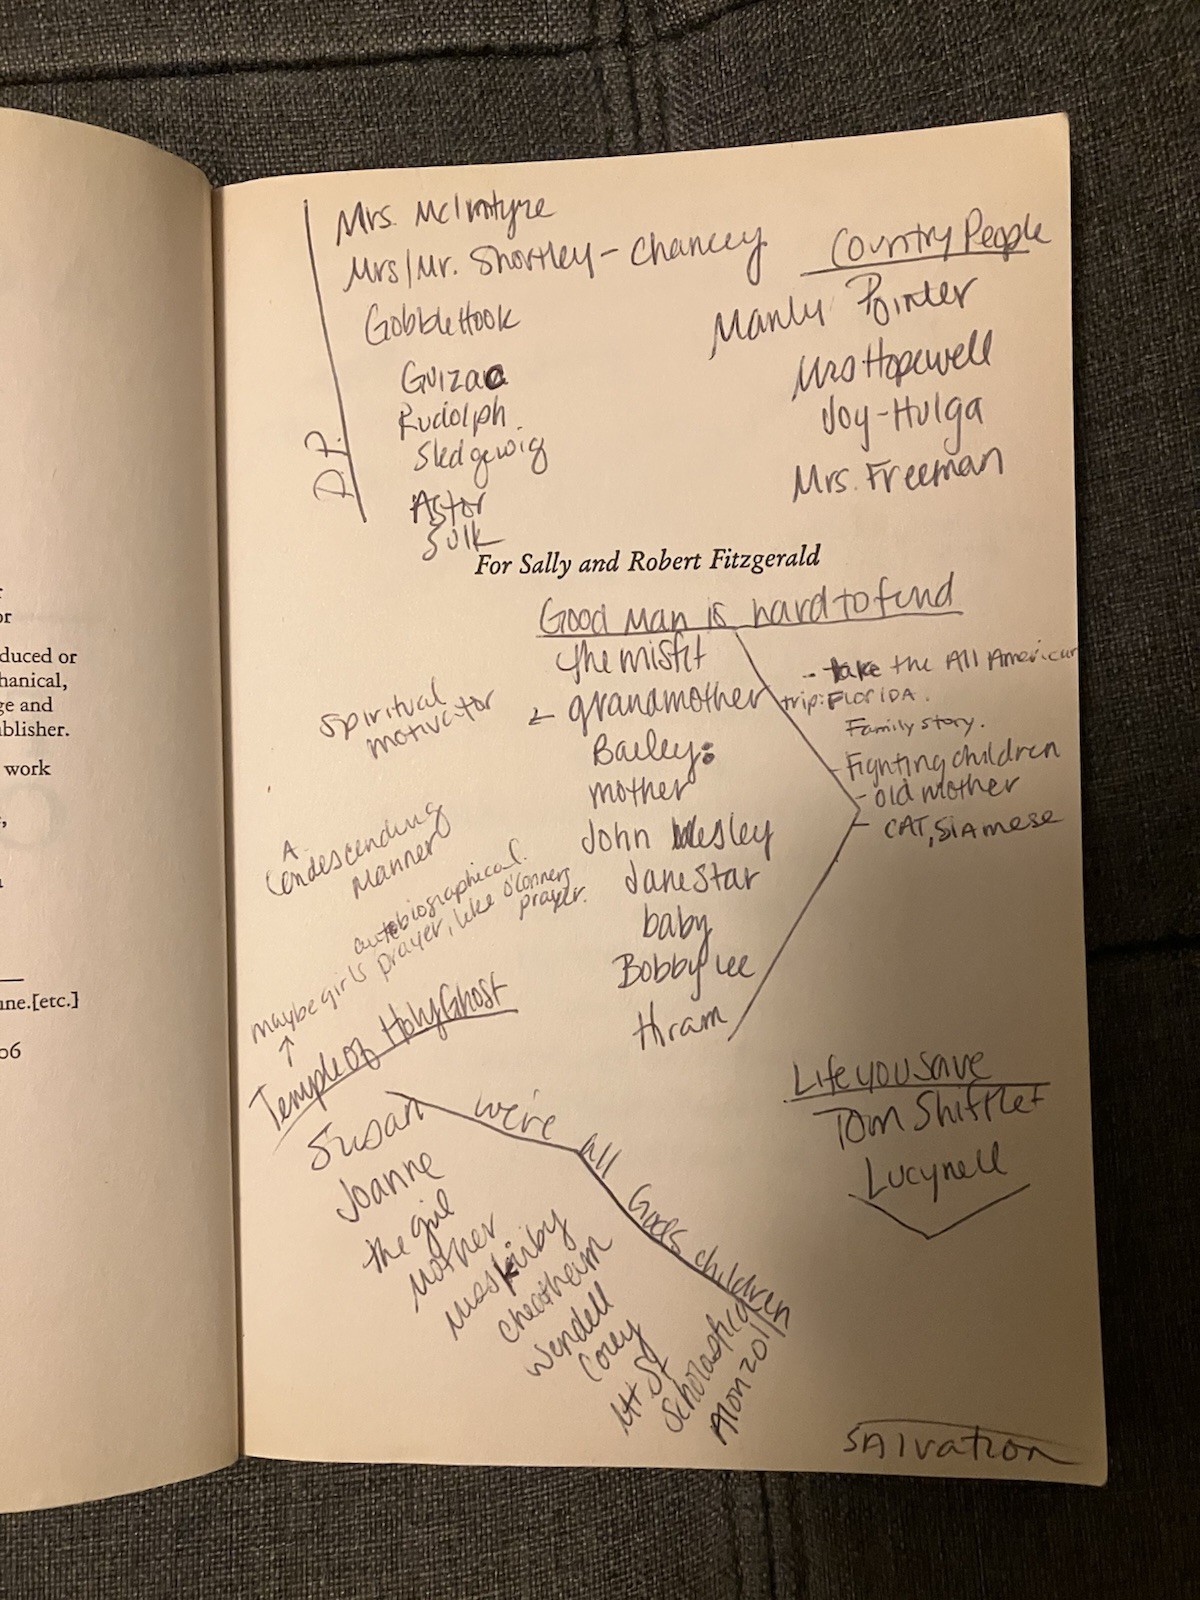 Mrs. McIntyre
Mrs/Mr. Shortley - Chancey
GobbleHook
Guizac
Rudolph
Sledgewig
Astor
Sulk
D.P.
Country People
Manly Pointer
Mrs Hopewell
Joy-Hulga
Mrs. Freeman
For Sally and Robert Fitzgerald
Good Man is hard to find
the misfit
grandmother
Bailey:
mother
John Wesley
JaneStar
baby
Bobby Lee
Hiram
- take the All American
trip: FLORIDA.
Family story.
- Fighting children
- old mother
- CAT, Siamese
Spiritual
motivator
A
Condescending
Manner
autobiographical.
maybe girls prayer, like O'Conners
prayer.
Temple of Holy Ghost
Susan
Joanne
the girl
Mother
Miss Kirby
Cheatham
Wendell
Corey
Mt. St
Scholastica
Alonzo
we're all Gods children
Life you save
Tom Shiftlet
Lucynell
SAlvation
or
duced or
hanical,
ge and
blisher.
work
une.[etc.]
06